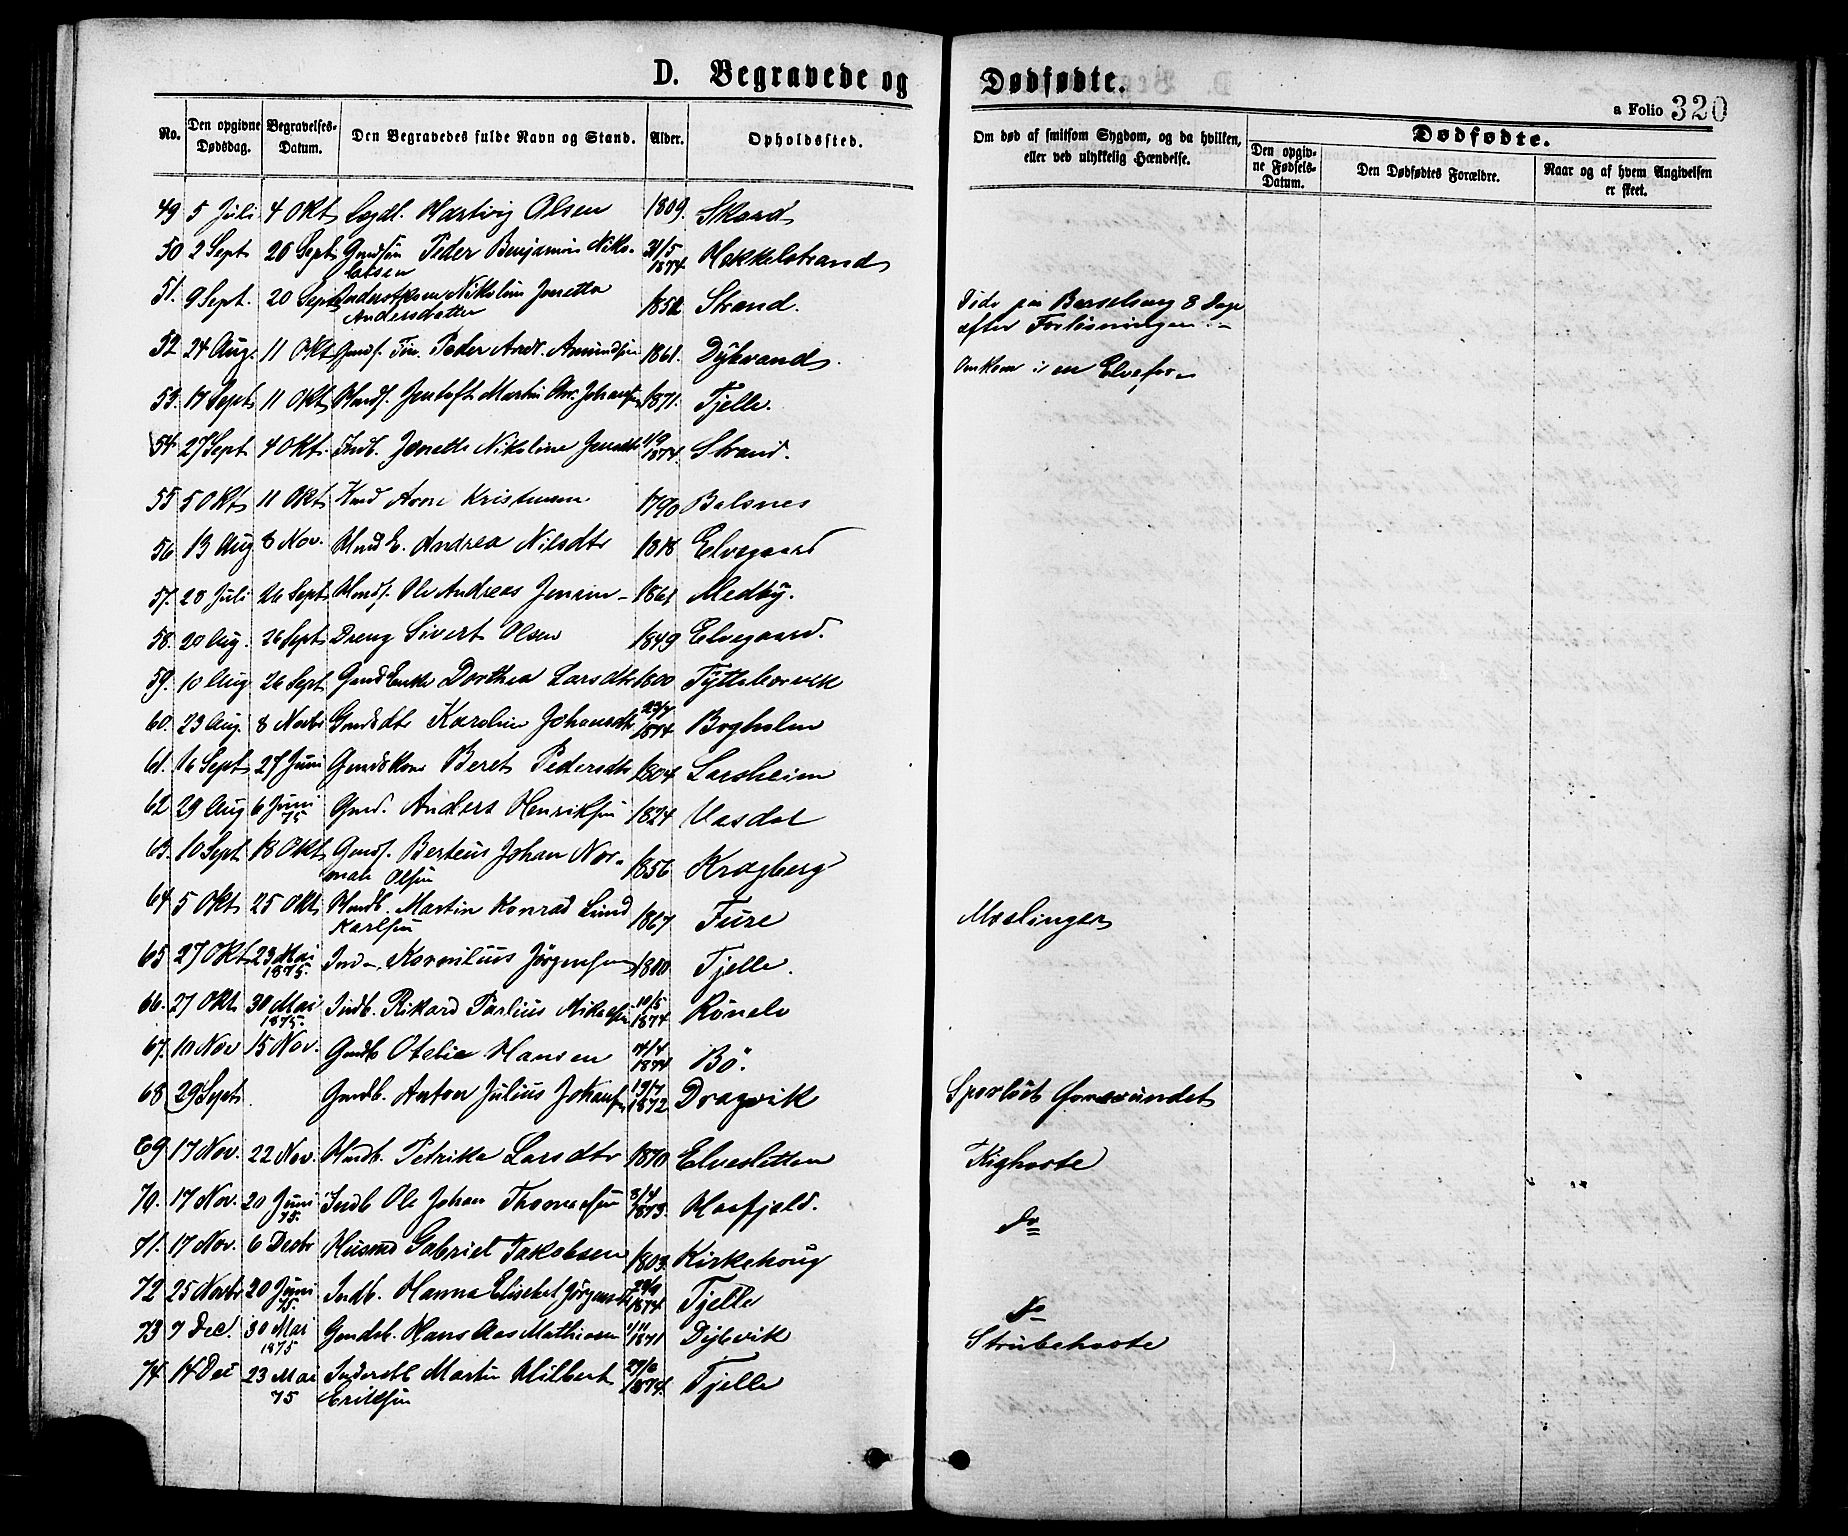 D. Begravede og Dødfødte.
a Folio 320
No.
Den opgivne Dødsdag.
Begravelses-Datum.
Den Begravedes fulde Navn og Stand.
Alder.
Opholdssted.
Om død af smitsom Sygdom, og da hvilken, eller ved ulykkelig Hændelse.
Dødfødte.
Den opgivne Fødsels-Datum.
Den Dødfødtes Forældre.
Naar og af hvem Angivelsen er skeet.
49 5 Juli 4 Okt Hartvig Olsen 1809. Skard
50 2 Sept 20 Sept Gmdsøn Peder Benjamin Niko- 31/5 1874 Hekkelstrand
laisen
51. 9 Sept. 20 Sept Nikoline Jonetta 1852 Strand. Døde paa Barselseng 8 Dage
Andersdatter efter Forløsningen
52 24 Aug. 11 Okt Peder Andr. Amundsen 1861. Dybvand. Omkom i en Elvefos
53. 17 Sept 11 Okt Jentoft Martin Johansen 1871. Tjelle.
54. 27 Sept 4 Okt. Indb. Jonette Nikoline 1/9 1874. Strand.
55 5 Okt 11 Okt Arne Kristensen 1790 Balsnes
56. 13 Aug 8 Nov. Hmd E. Andrea Nilsdtr 1818 Elvegaard
57. 28 Juli 26 Sept Hmds. Ole Andreas Jensen 1861 Medby.
58. 20 Aug. 26 Sept Dreng Sivert Olsen 1849 Elvegaard.
59. 10 Aug 26 Sept Gmd Enke Dorthea Larsdtr 1800 Tyttebærvik
60. 23 Aug. 8 Novbr Gmdsdtr Karoline Johansdtr 23/7 1874 Bogholm
61. 16 Sept 27 Juni Gmdskone Beret Pedersdtr 1804 Larsheim
62 29 Aug 6 Juni 75 Gmd. Anders Henriksen 1824 Vasdal
63. 10 Sept 18 Okt Gmds. Berteus Johan Nor- 1856 Kragberg
man Olsen
64 5 Okt 25 Okt Hmdb. Martin Konrad Lund 1867 Fure Mæslinger
Karlsen
65 27 Okt 23 Mai 1875. Ind. Kornilius Jørgensen 1800 Tjelle.
66. 27 Okt 30 Mai 1875. Indb. Rikard Parlius Mikalsen 10/5 1874 Rønelv
67. 10 Nov 15 Nov. Gmdb Otelie Hansen 14/4 1874 Bø.
68 29 Sept Gmdb. Anton Julius Johansen 19/7 1872 Dragvik Sporløst forsvundet
69 17 Nov. 22 Nov. Hmdb. Petrikke Larsdtr 1870 Elvesletten Kighoste
70. 17 Nov. 20 Juni 75. Indb Ole Johan Thomassen 3/4 1873. Haafjeld. Do
71. 17 Nov. 6 Decbr Husmd Gabriel Jakobsen 1803. Kirkehoug
72 25 Novbr 20 Juni 75. Indb. Hanna Elisabet Jørgensdtr 28/9 1874 Tjelle Do
73 7 Dec. 30 Mai 1875 Gmdsb. Hans Aas Mathisen 1/11 1871 Dybvik Strubehoste
74 14 Dec 23 Mai 75 Inderstb Martin Hilbert 27/6 1874. Tjelle
Eriksen